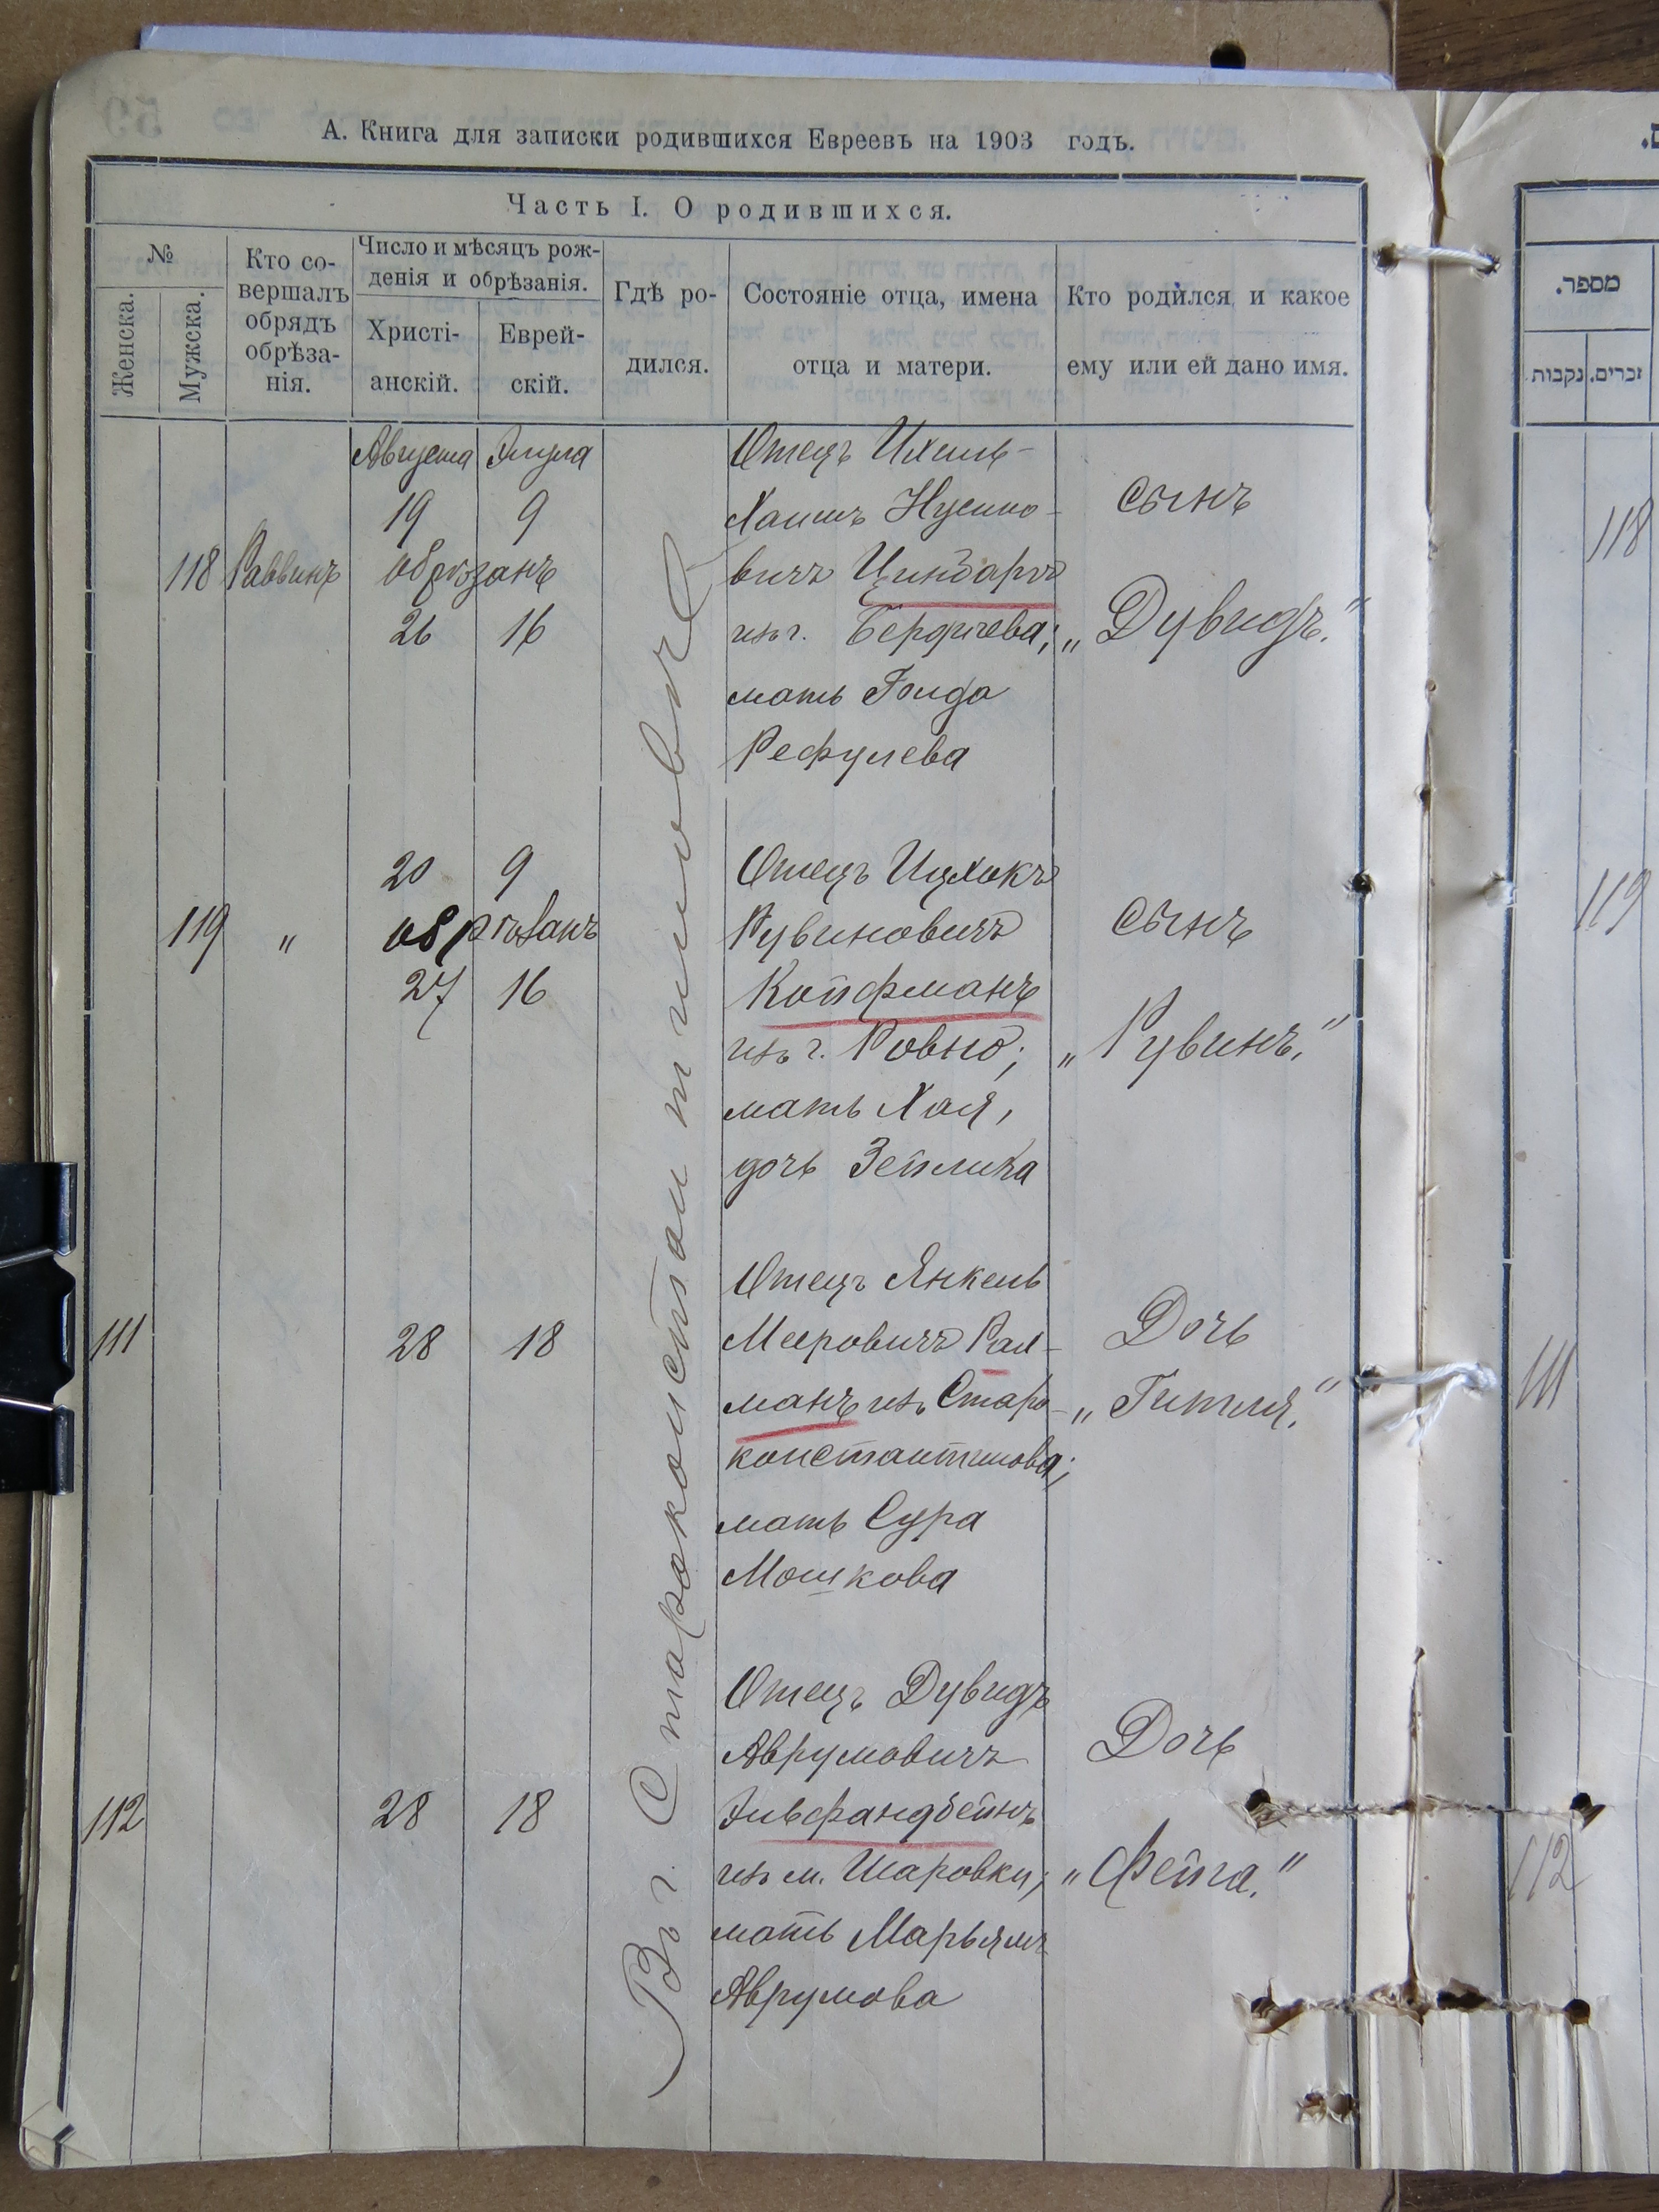 А. Книга для записки родившихся Евреевъ на 1903 годъ.
Часть I. О родившихся.
№
Женска.
Мужска.
Кто со-
вершалъ
обрядъ
обрѣза-
нія.
Число и мѣсяцъ рож-
денія и обрѣзанія.
Христі-
анскій.
Еврей-
скій.
Гдѣ ро-
дился.
Состояніе отца, имена
отца и матери.
Кто родился и какое
ему или ей дано имя.
Въ г. Староконстантиновѣ
118 Раввинъ
Августа Элула
19 9
обрѣзанъ
26 16
Отецъ Ихель-
Хаимъ Нусино-
вичъ Циндаръ
изъ г. Бердичева;
мать Голда
Рефулева
сынъ
„Дувидъ.“
119 „
20 9
обрѣзанъ
27 16
Отецъ Ицхокъ
Рувиновичъ
Койфманъ
изъ г. Ровно;
мать Хая,
дочь Зейлика
сынъ
„Рувинъ.“
111
28 18
Отецъ Янкель
Мееровичъ Рай-
манъ изъ Старо-
константинова;
мать Сура
Мошкова
Дочь
„Гитля.“
112
28 18
Отецъ Дувидъ
Аврумовичъ
Эльфандбейнъ
изъ м. Шаровки;
мать Марьямъ
Аврумова
Дочь
„Фейга.“
מספר.
נקבות
זכרים.
118
119
111
112